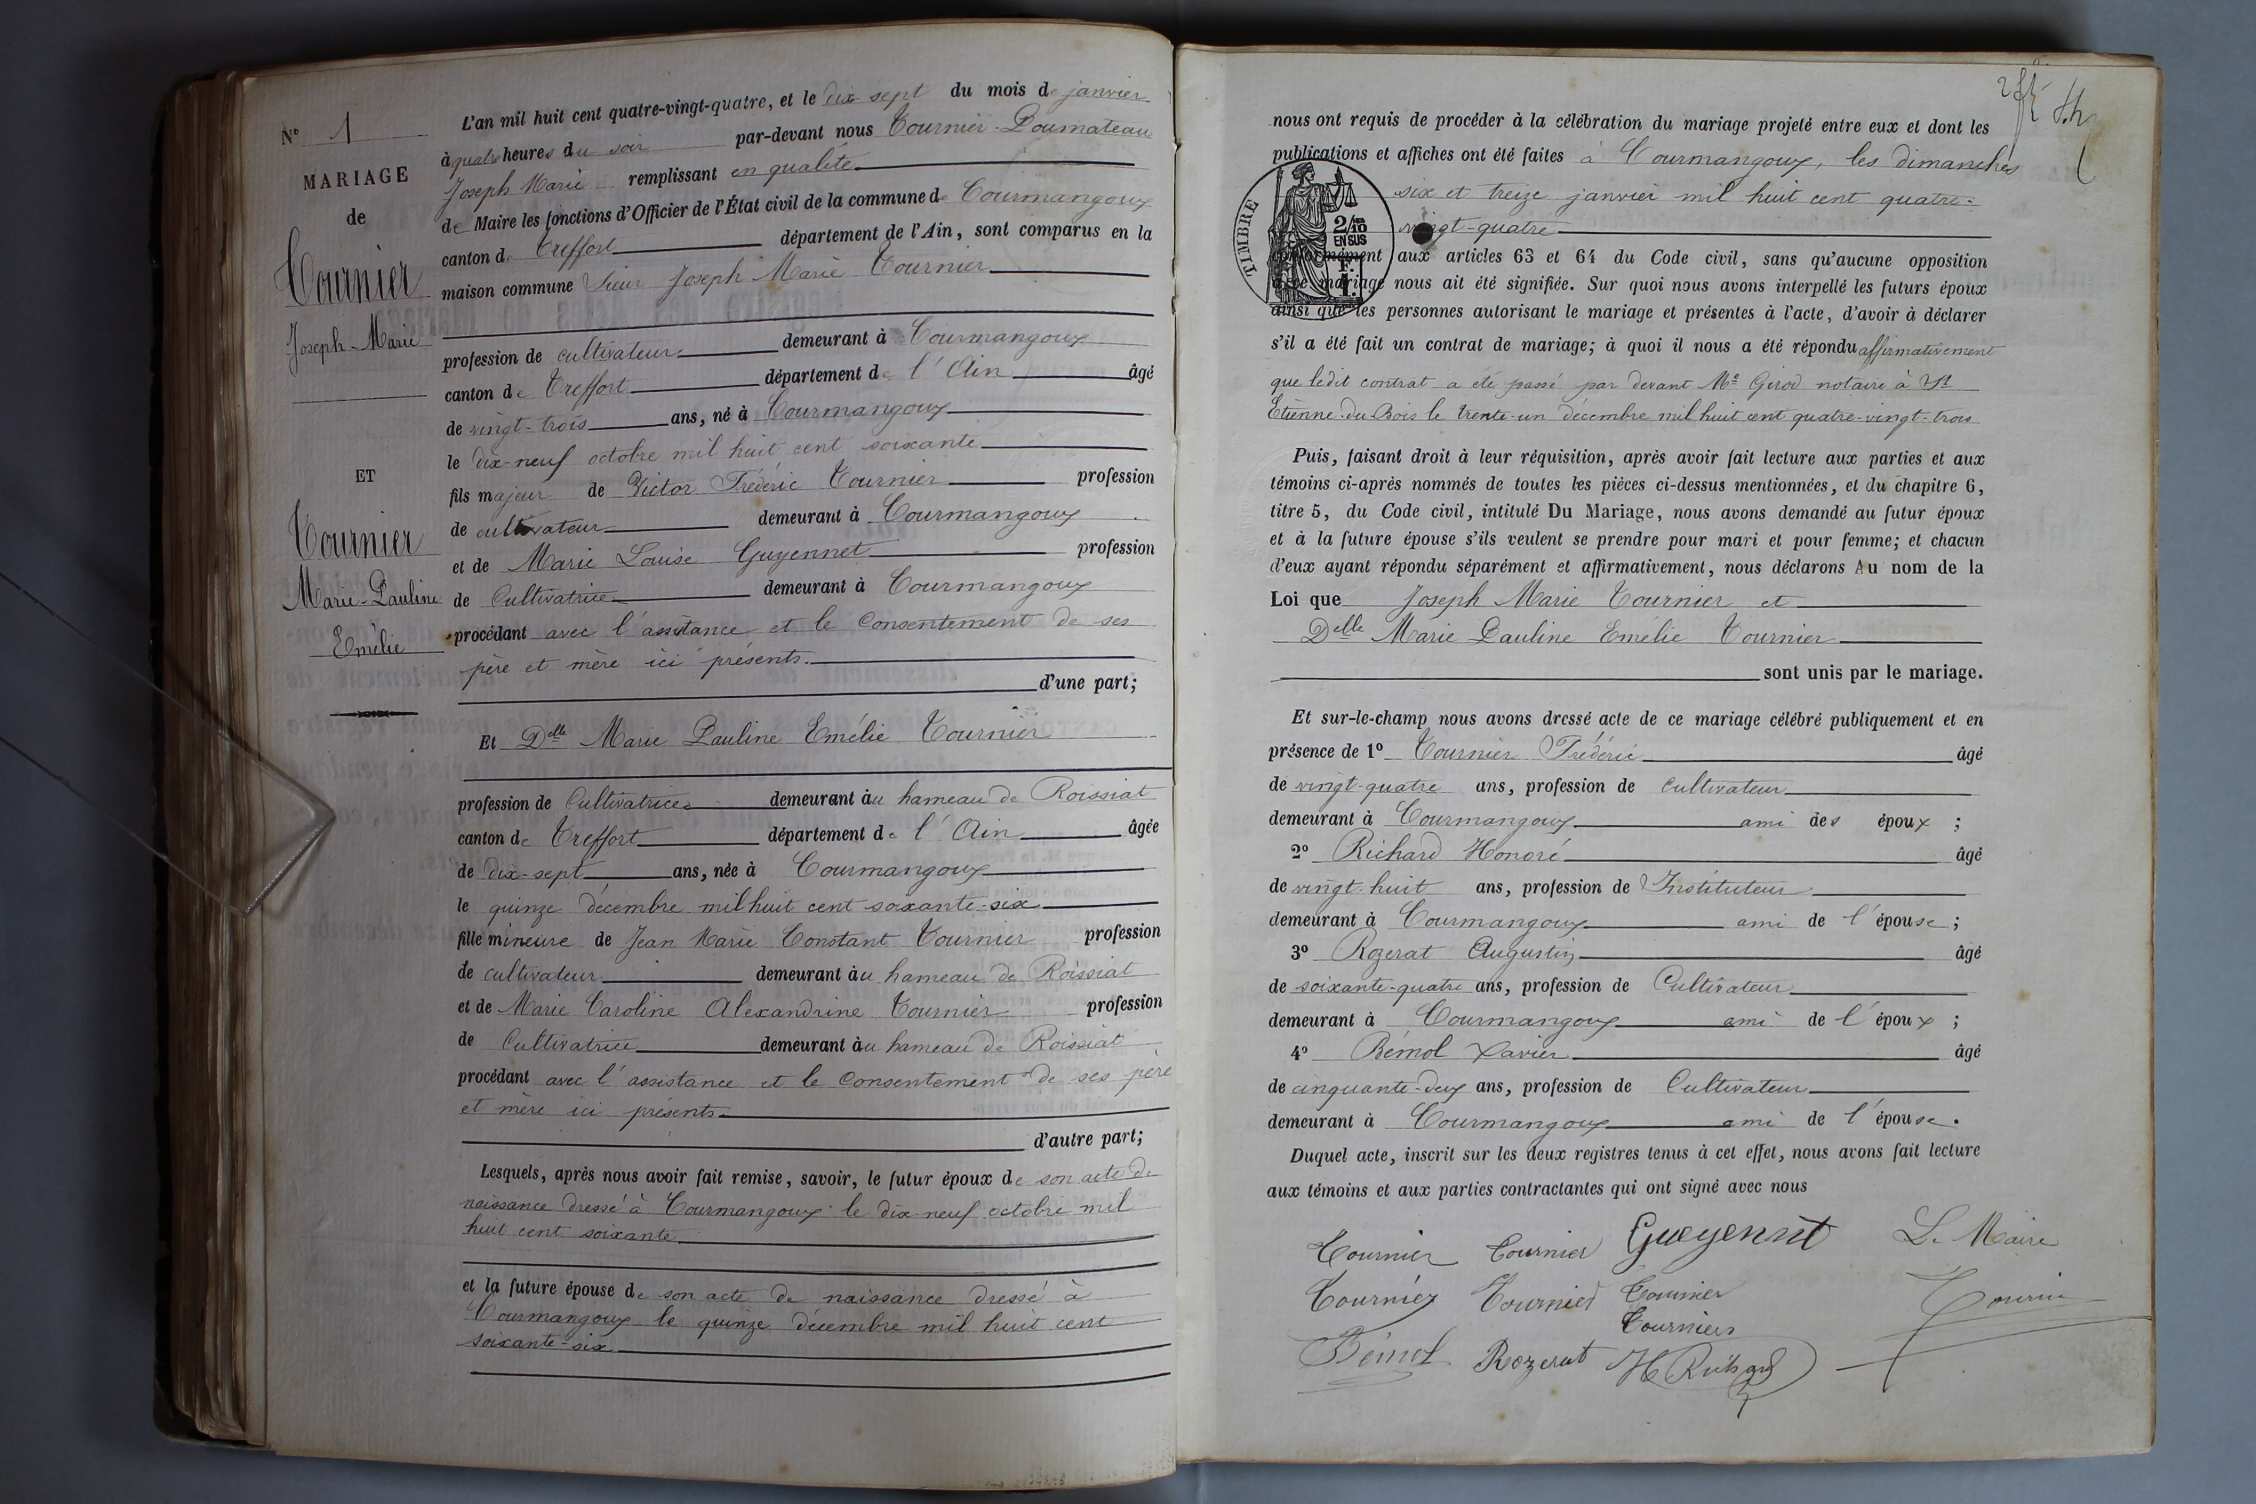 N° 1
MARIAGE
de
Tournier
Joseph-Marie
ET
Tournier
Marie-Pauline
Emélie
L'an mil huit cent quatre-vingt-quatre, et le dix sept du mois de janvier
à quatre heures du soir par-devant nous Tournier-Poumateau
Joseph Marie remplissant en qualité
de Maire les fonctions d'Officier de l'État civil de la commune de Courmangoux
canton de Treffort département de l'Ain, sont comparus en la
maison commune Sieur Joseph Marie Tournier
profession de cultivateur demeurant à Courmangoux
canton de Treffort département de l'Ain âgé
de vingt-trois ans, né à Courmangoux
le dix-neuf octobre mil huit cent soixante
fils majeur de Victor Frédéric Tournier profession
de cultivateur demeurant à Courmangoux
et de Marie Louise Guyennet profession
de Cultivatrice demeurant à Courmangoux
procédant avec l'assistance et le consentement de ses
père et mère ici présents.
d'une part;
Et Delle Marie Pauline Emélie Tournier
profession de Cultivatrice demeurant au hameau de Roissiat
canton de Treffort département de l'Ain âgée
de dix-sept ans, née à Courmangoux
le quinze décembre mil huit cent soixante-six
fille mineure de Jean Marie Constant Tournier profession
de cultivateur demeurant au hameau de Roissiat
et de Marie Caroline Alexandrine Tournier profession
de Cultivatrice demeurant au hameau de Roissiat
procédant avec l'assistance et le consentement de ses père
et mère ici présents
d'autre part;
Lesquels, après nous avoir fait remise, savoir, le futur époux de son acte de
naissance dressé à Courmangoux le dix-neuf octobre mil
huit cent soixante
et la future épouse de son acte de naissance dressé à
Courmangoux le quinze décembre mil huit cent
soixante-six
nous ont requis de procéder à la célébration du mariage projeté entre eux et dont les
publications et affiches ont été faites à Courmangoux, les dimanches
six et treize janvier mil huit cent quatre-
vingt-quatre
TIMBRE
2/10
EN SUS
F.
1.
conformément aux articles 63 et 64 du Code civil, sans qu'aucune opposition
à ce mariage nous ait été signifiée. Sur quoi nous avons interpellé les futurs époux
ainsi que les personnes autorisant le mariage et présentes à l'acte, d'avoir à déclarer
s'il a été fait un contrat de mariage; à quoi il nous a été répondu affirmativement
que ledit contrat a été passé par devant Me Girod notaire à St
Etienne-du-Bois le trente-un décembre mil huit cent quatre-vingt-trois
Puis, faisant droit à leur réquisition, après avoir fait lecture aux parties et aux
témoins ci-après nommés de toutes les pièces ci-dessus mentionnées, et du chapitre 6,
titre 5, du Code civil, intitulé Du Mariage, nous avons demandé au futur époux
et à la future épouse s'ils veulent se prendre pour mari et pour femme; et chacun
d'eux ayant répondu séparément et affirmativement, nous déclarons Au nom de la
Loi que Joseph Marie Tournier et
Delle Marie Pauline Emélie Tournier
sont unis par le mariage.
Et sur-le-champ nous avons dressé acte de ce mariage célébré publiquement et en
présence de 1° Tournier Frédéric âgé
de vingt-quatre ans, profession de cultivateur
demeurant à Courmangoux ami des époux ;
2° Richard Honoré âgé
de vingt-huit ans, profession de Instituteur
demeurant à Courmangoux ami de l'épouse ;
3° Rozerat Augustin âgé
de soixante-quatre ans, profession de Cultivateur
demeurant à Courmangoux ami de l'époux ;
4° Bémol Xavier âgé
de cinquante-deux ans, profession de Cultivateur
demeurant à Courmangoux ami de l'épouse.
Duquel acte, inscrit sur les deux registres tenus à cet effet, nous avons fait lecture
aux témoins et aux parties contractantes qui ont signé avec nous
Tournier Tournier Gueyennet Le Maire
Tournier Tournier Tournier
Tournier
Bémol Rozerat H Richard